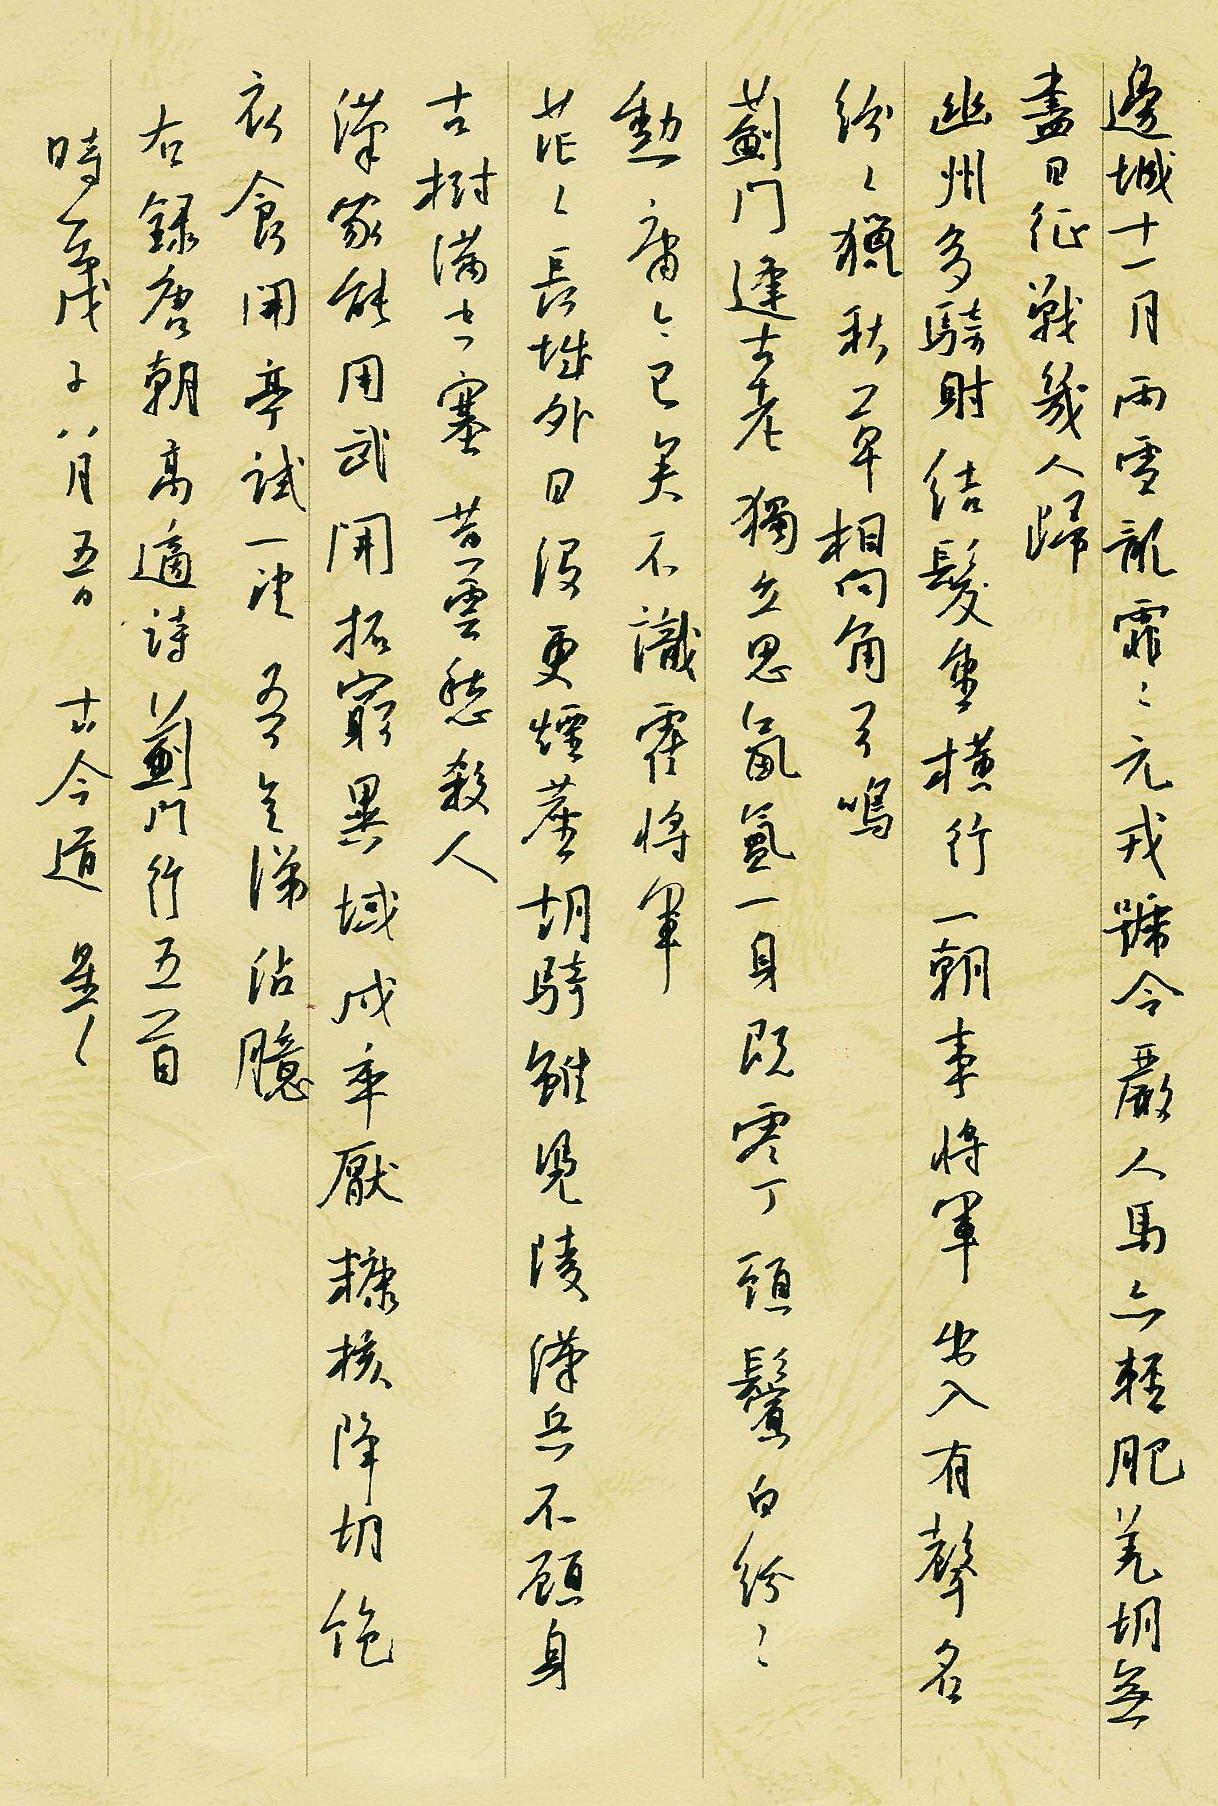 邊城十一月雨雪亂霏々元戎號令嚴人馬亦輕肥羌胡無
盡日征戰幾人歸
幽州多騎射結髮重橫行一朝事將軍出入有聲名
紛々獵秋草相向角弓鳴
薊門逢古老獨立思氛氳一身既零丁頭鬢白紛々
勳庸今已矣不識霍將軍
茫々長城外日沒更煙塵胡騎雖憑陵漢兵不顧身
古樹滿空塞黃雲愁殺人
漢家能用武開拓窮異域戍卒厭糠核降胡飽
衣食開亭試一望吾欲涕沾臆
右錄唐朝高適詩薊門行五首
時戊子八月五日 古今道